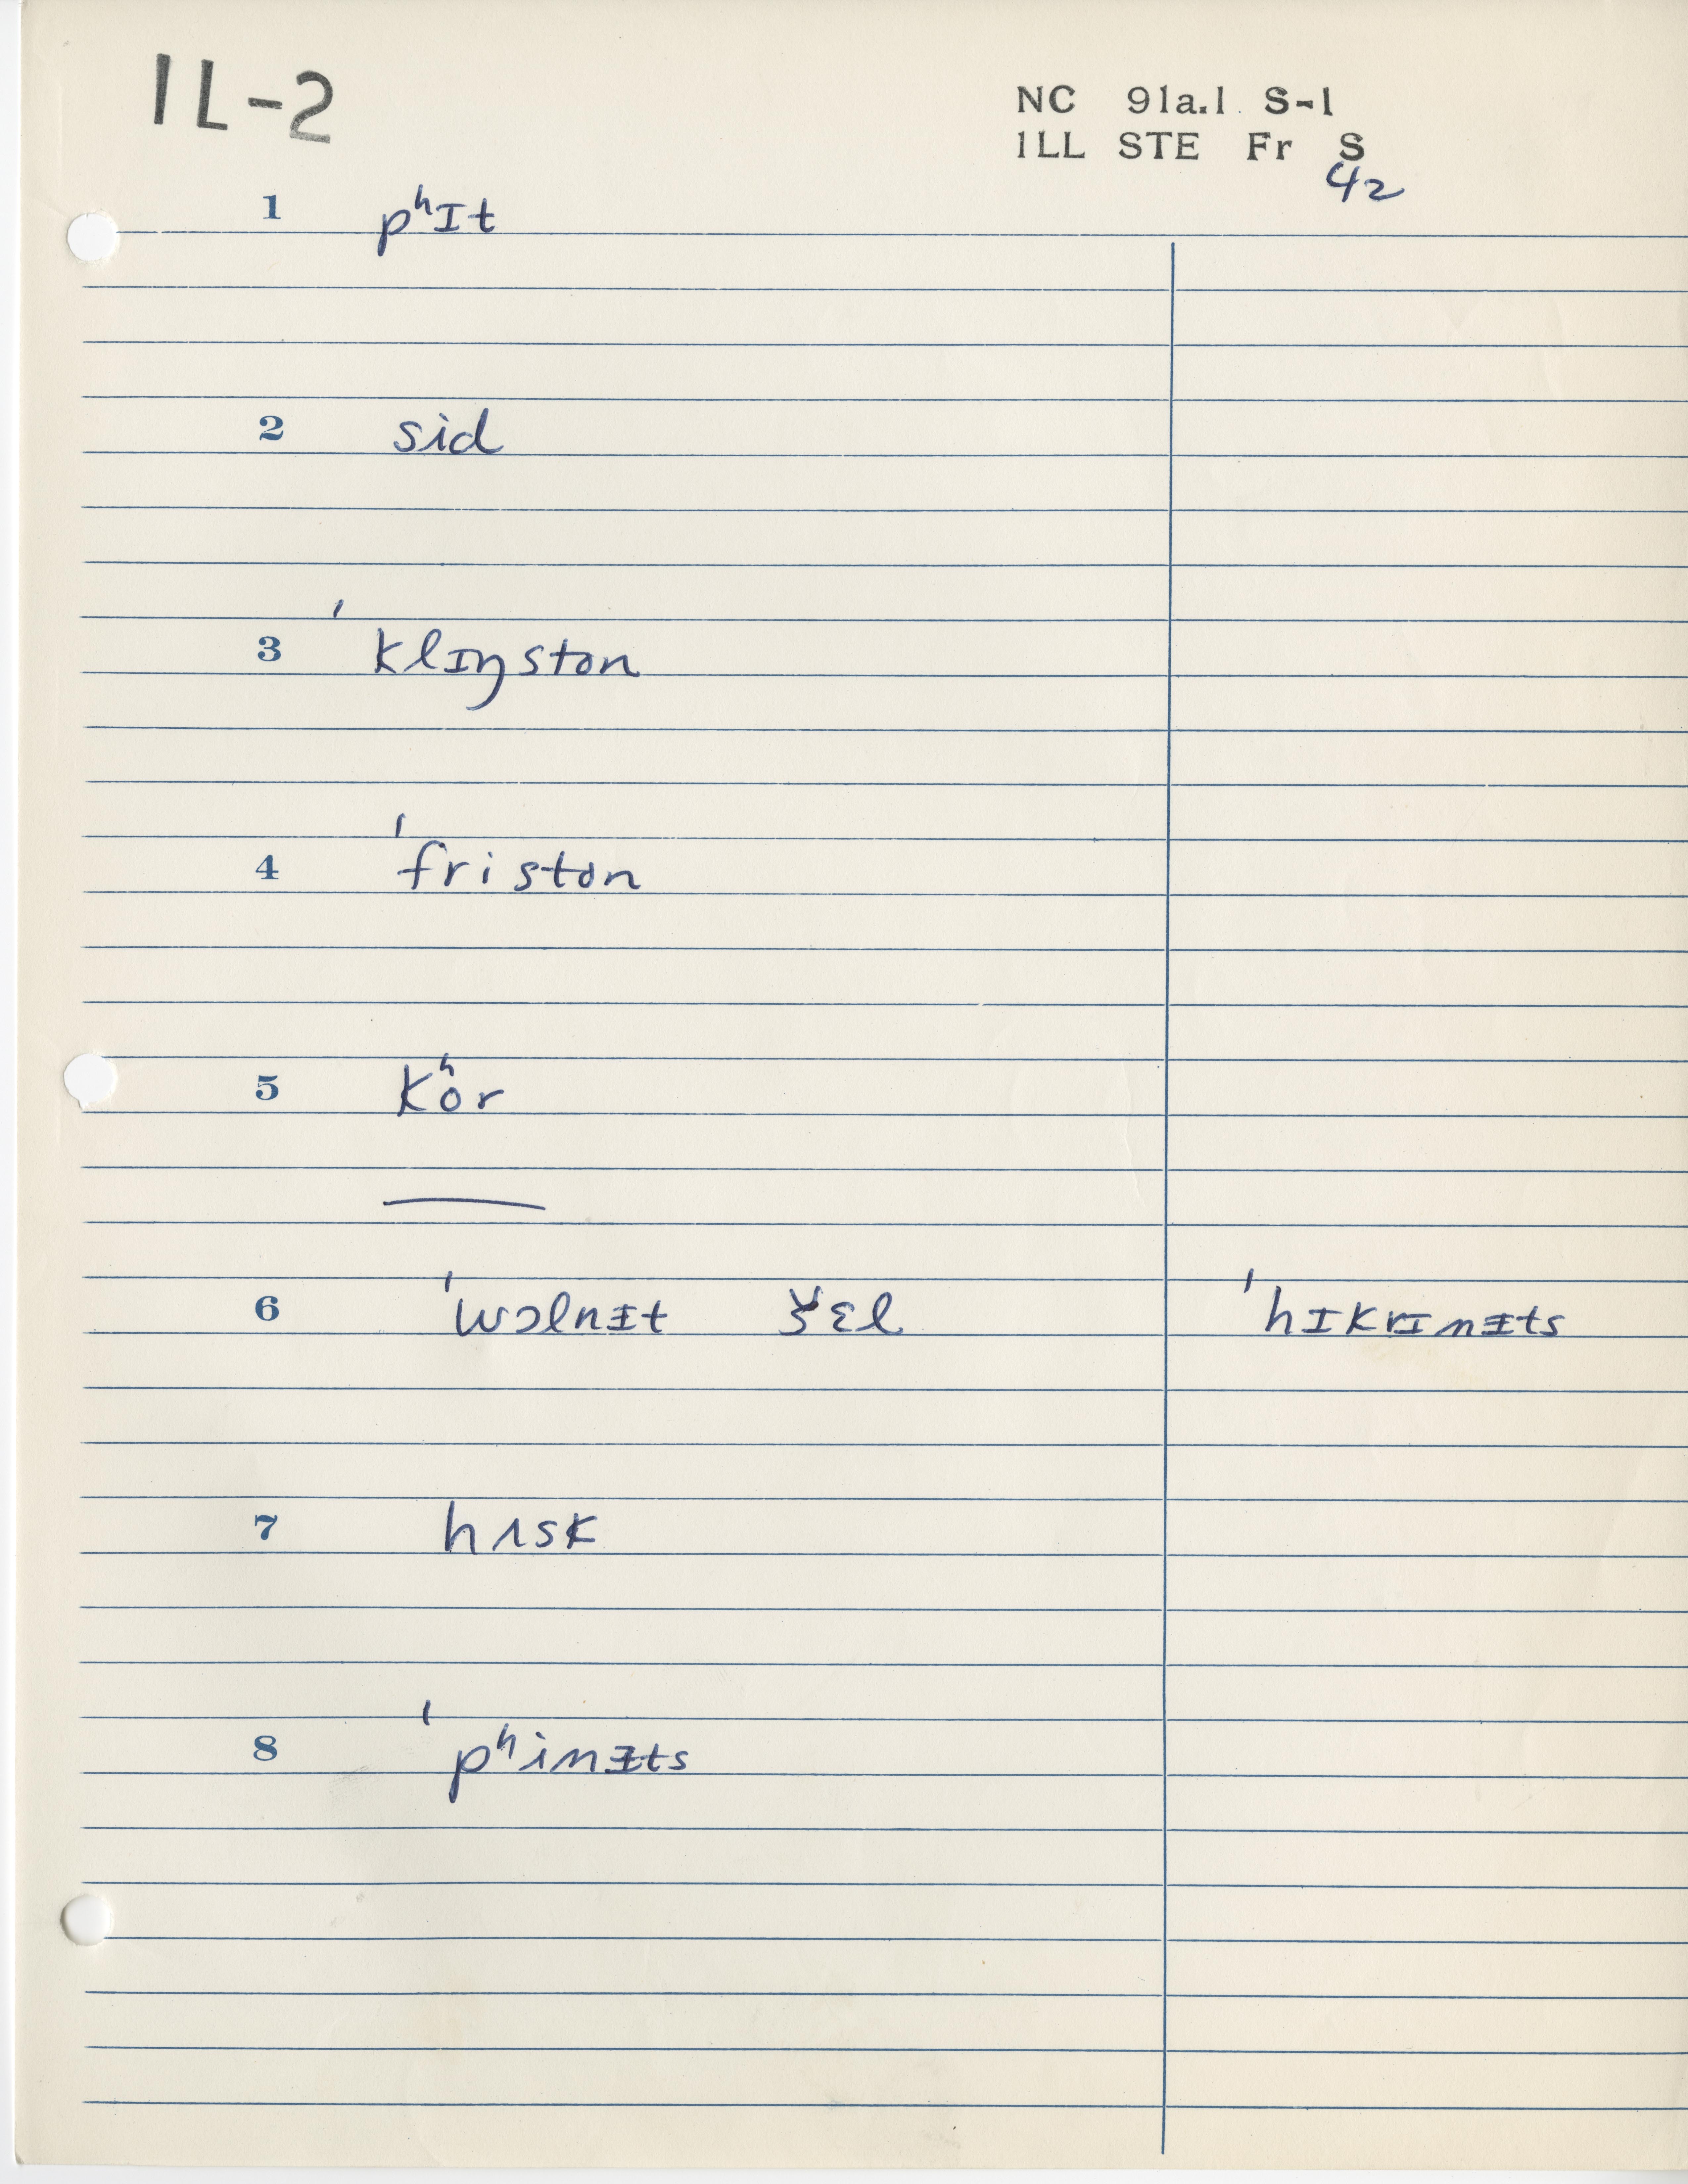 IL-2
NC 91a.1 S-1
ILL STE Fr S
42
1 pʰɪt
2 sid
3 ˈklɪŋston
4 ˈfriston
5 kʰor
6 ˈwɔlnᵻt ʃɛl ˈhɪkrɪnᵻts
7 hʌsk
8 ˈpʰinᵻts